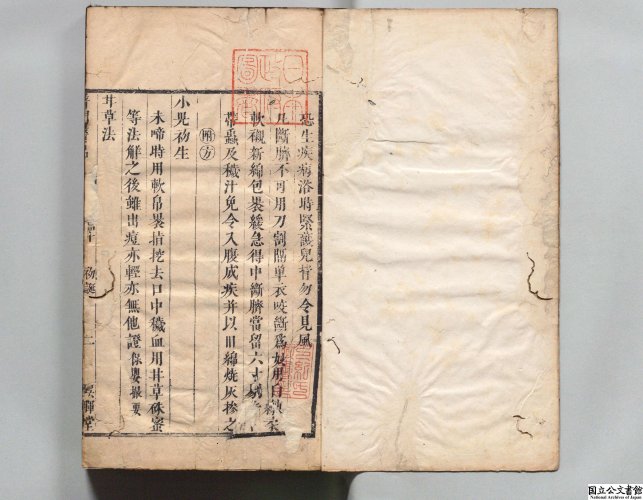 恐生疾病浴時緊護兒背勿令見風
凡斷臍不可用刀割隔單衣咬斷爲妙用白軟
軟襯新綿包裹緩急得中斷臍當留六寸
帶蟲及穢汁免令入腹成疾并以旧綿燒灰摻之
附方
小兒初生
未啼時用軟帛裹指挖去口中穢血用甘草硃蜜
等法解之後雖出痘亦輕亦無他證保嬰撮要
甘草法
初誕
煥輝堂
国立公文書館
National Archives of Japan